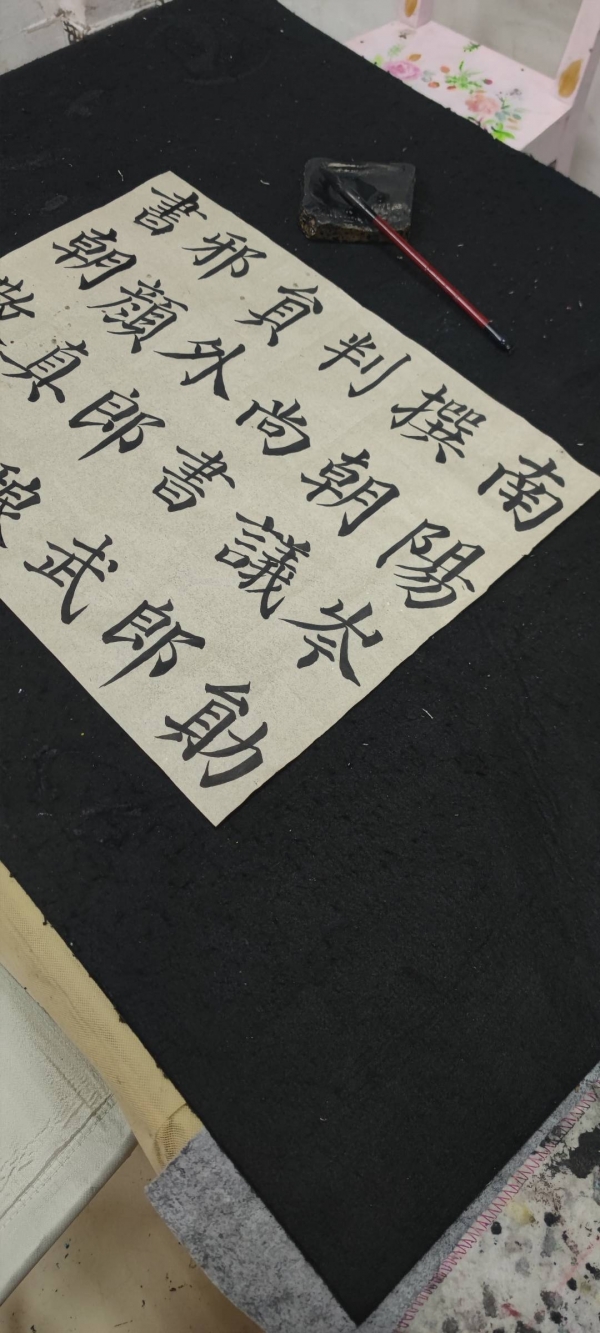 南陽岑勛
撰朝議郎
判尚書武
員外郎
邪顏真
書朝